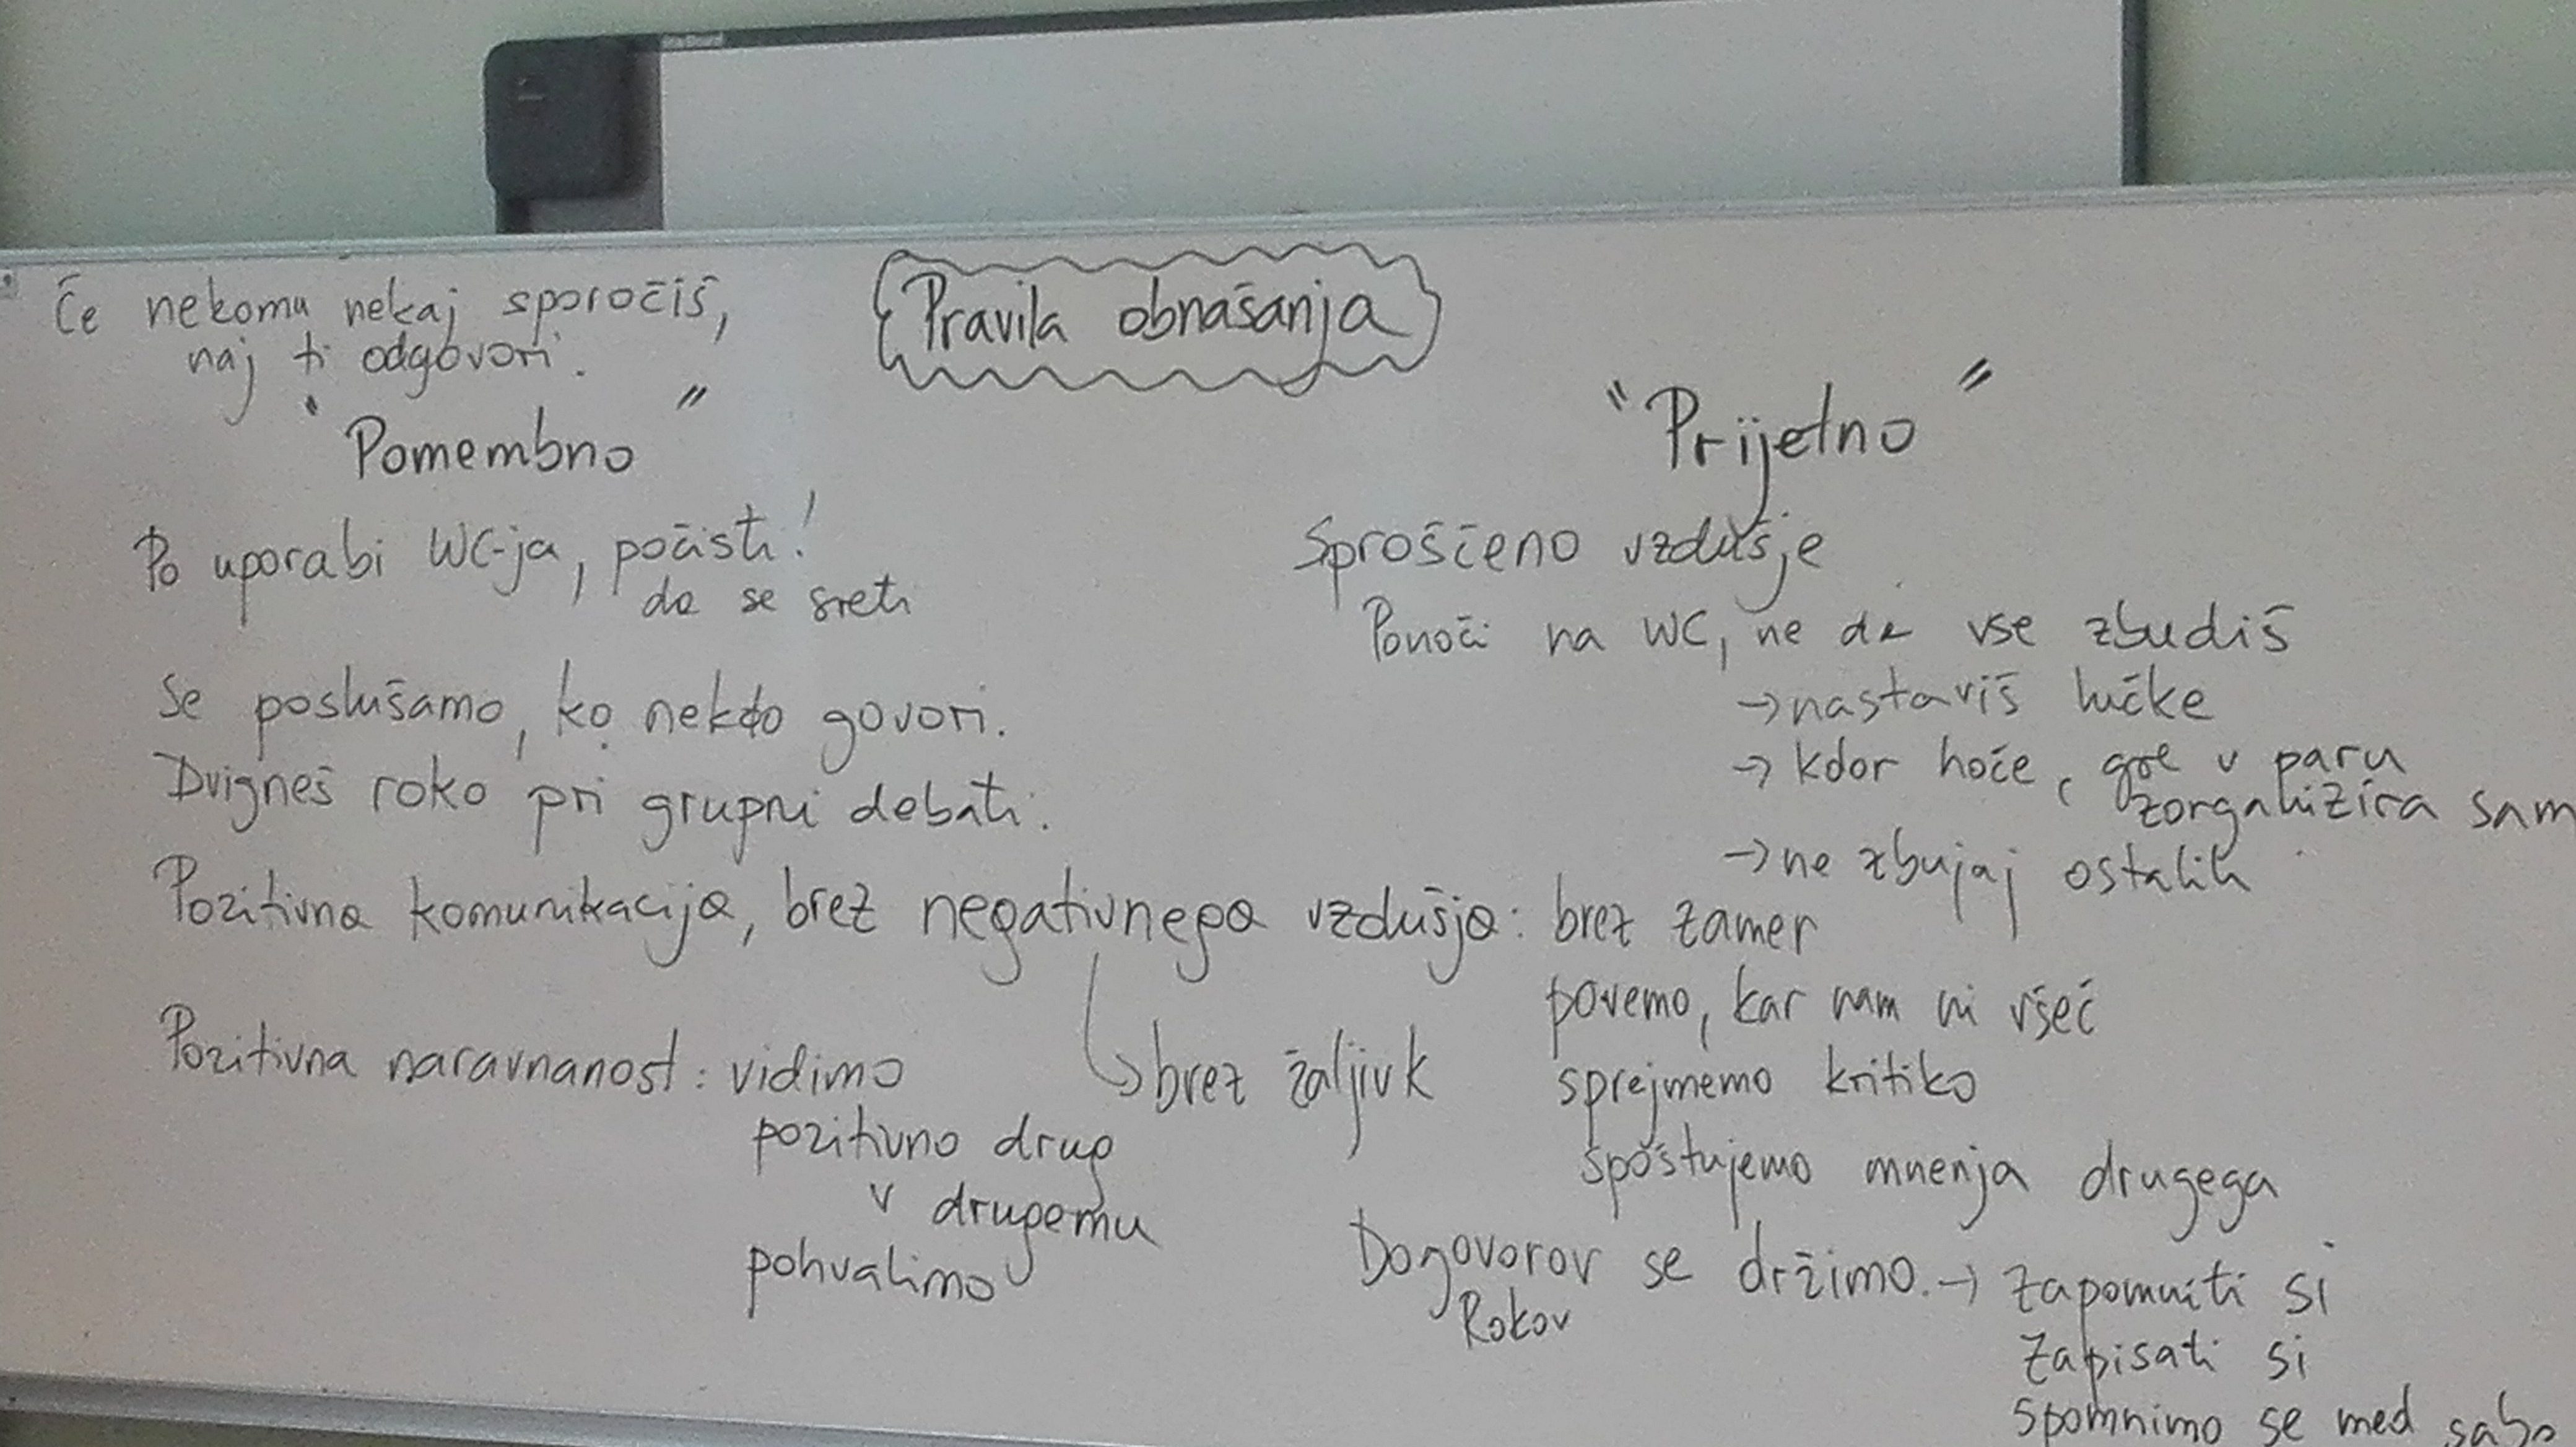 Če nekomu nekaj sporočiš,
naj ti odgovori.
Pravila obnašanja
"Pomembno"
Po uporabi WC-ja, počisti!
da se sveti
Se poslušamo, ko nekdo govori.
Dvigneš roko pri grupni debati.
Pozitivna komunikacija, brez negativnega vzdušja: brez zamer
povemo, kar nam ni všeč
sprejmemo kritiko
spoštujemo mnenja drugega
→ brez žaljivk
Pozitivna naravnanost: vidimo
pozitivno drug
v drugemu
pohvalimo
"Prijetno"
Sproščeno vzdušje
Ponoči na WC, ne da vse zbudiš
→ nastaviš lučke
→ kdor hoče, gre v paru
zorganizira sam
→ ne zbujaj ostalih
Dogovorov se držimo. → zapomniti si
Rokov
zapisati si
spomnimo se med sabo